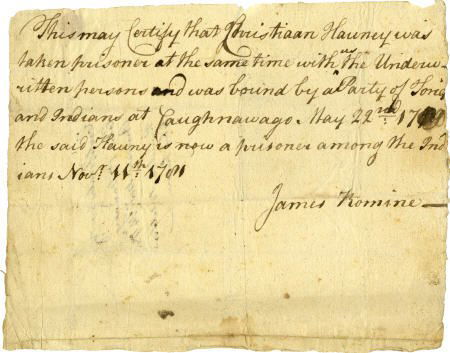 This may Certify that Christiaan Hauney was
taken prisoner at the same time with us the Underw-
ritten persons and was bound by a Party of Tories
and Indians at Caughnawago May 22nd:
the said Hauny is now a prisoner among the Ind
ians Novr. 11th: 1781
James Romine